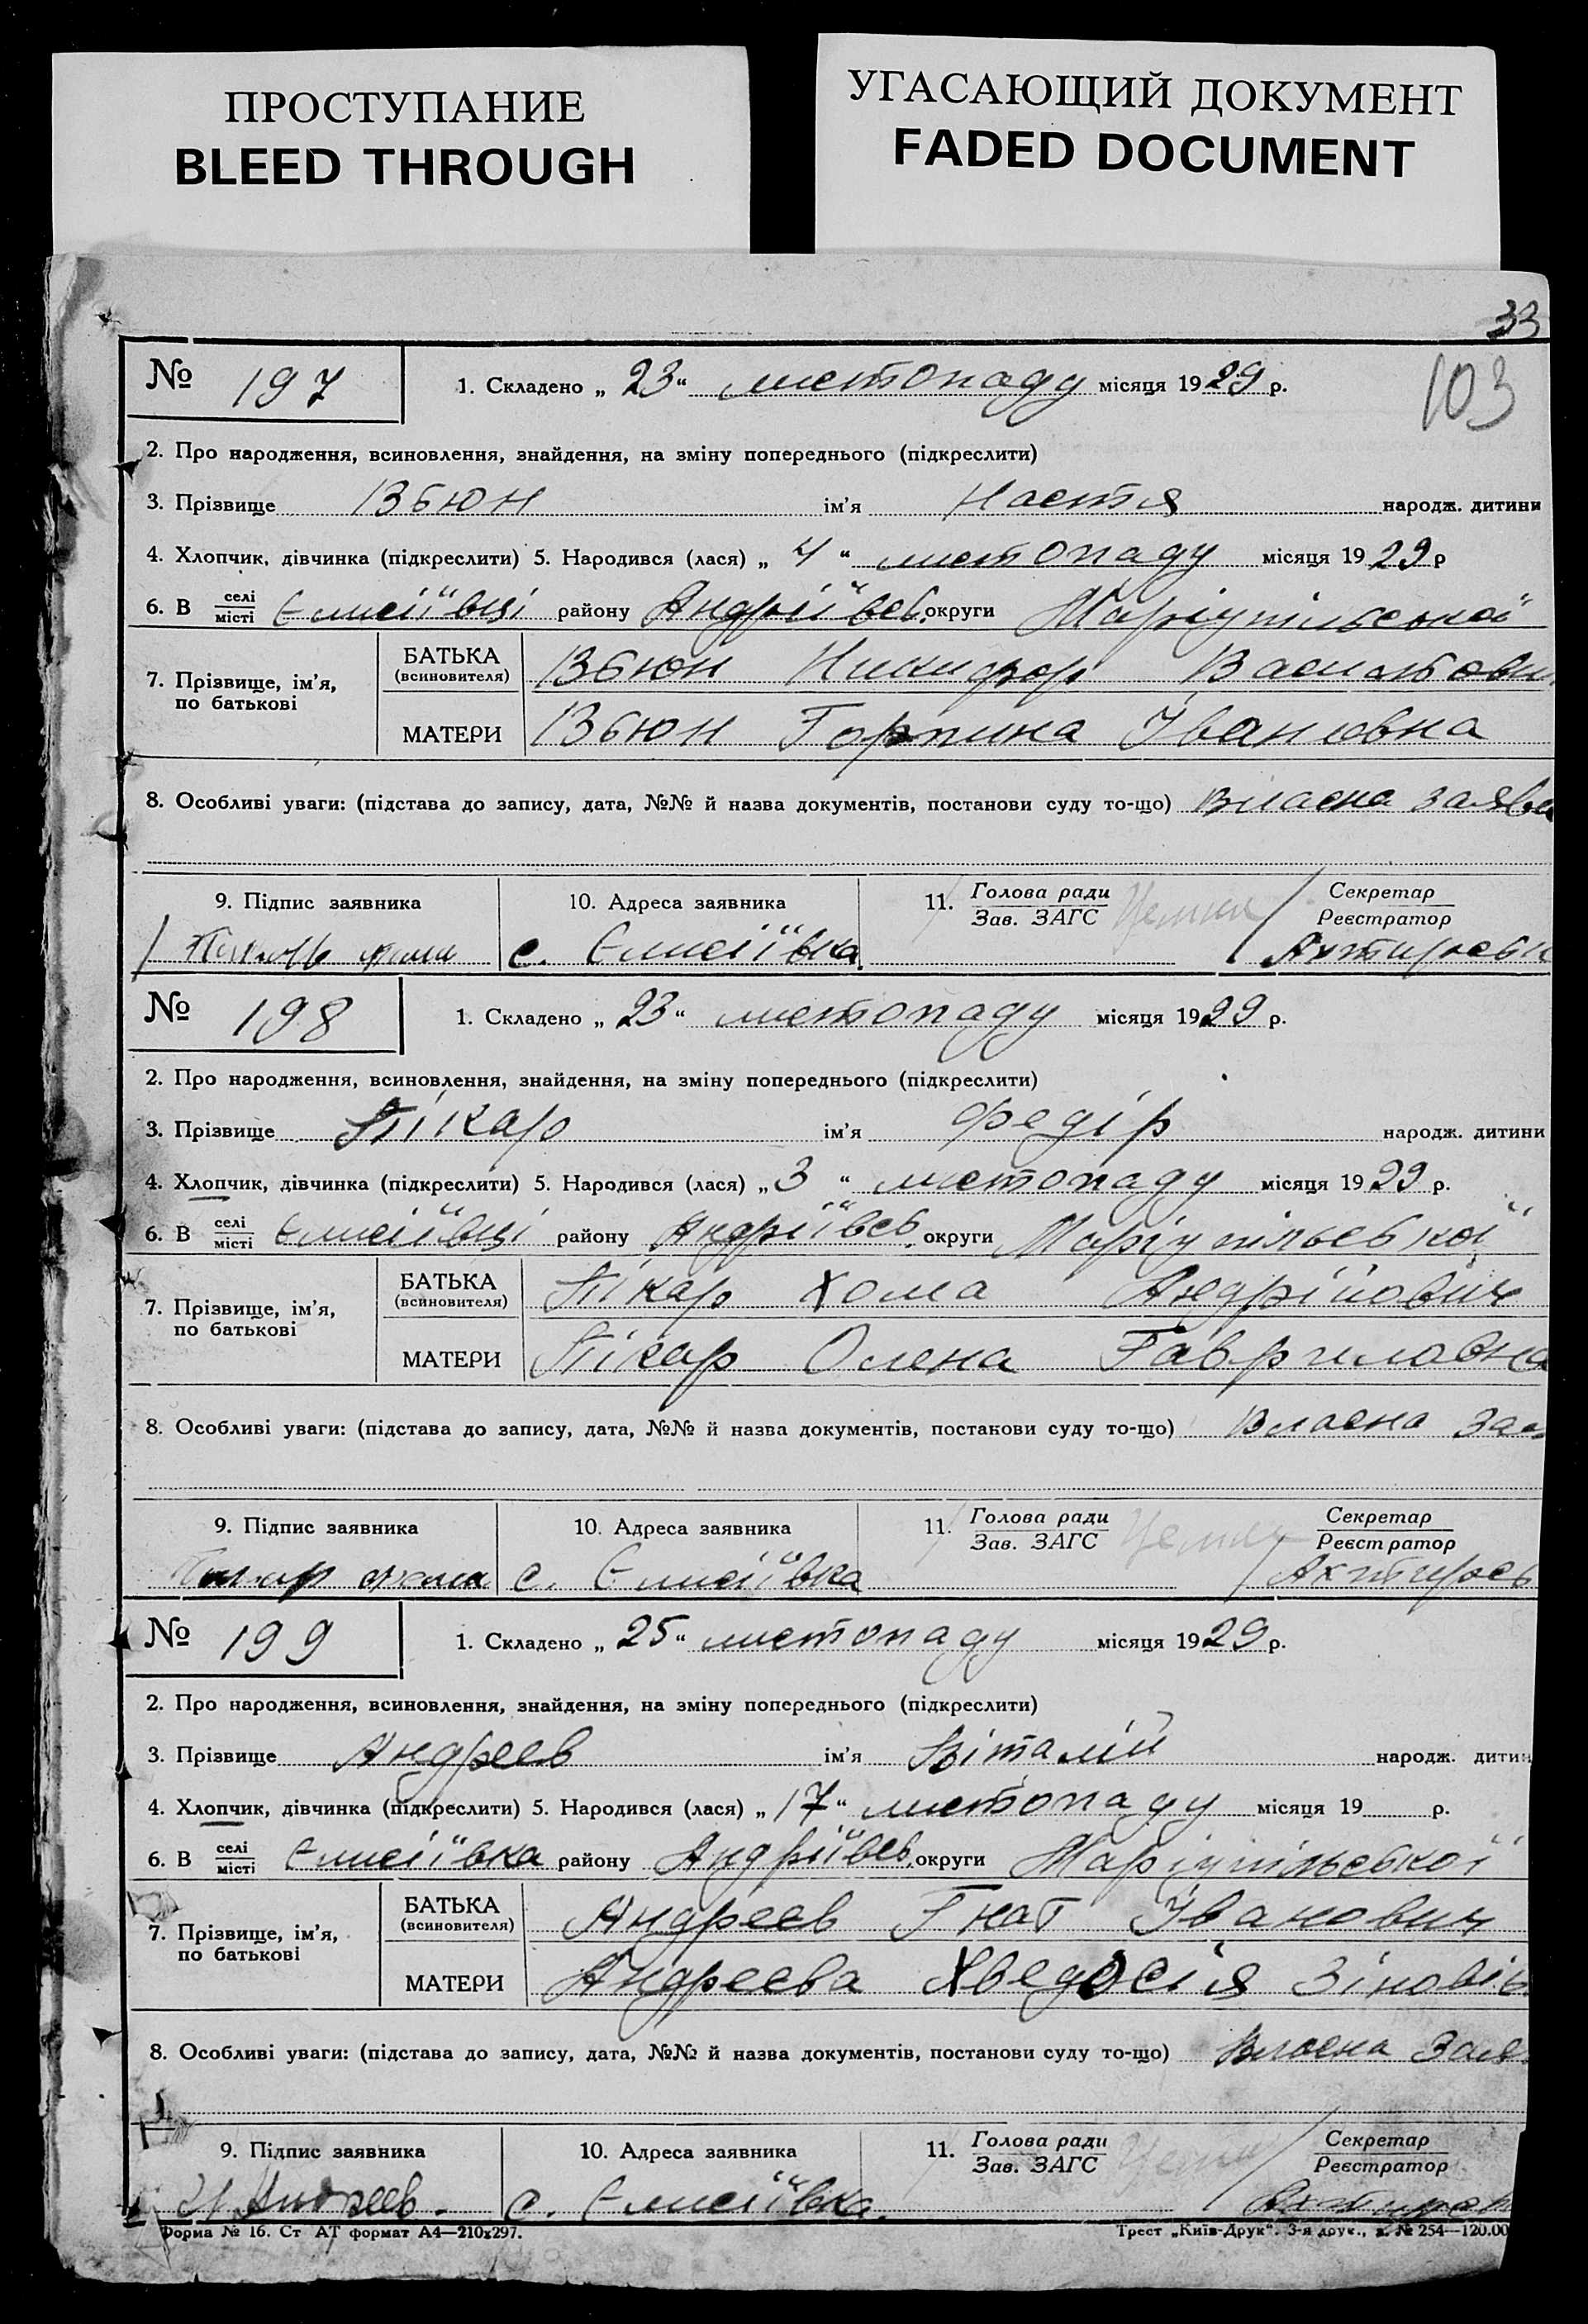 ПРОСТУПАНИЕ
BLEED THROUGH
УГАСАЮЩИЙ ДОКУМЕНТ
FADED DOCUMENT
33
103
№ 197 1. Складено „ 23 “ листопаду місяця 1929 р.
2. Про народження, всиновлення, знайдення, на зміну попереднього (підкреслити)
3. Прізвище Вбюн ім’я Настя народж. дитини
4. Хлопчик, дівчинка (підкреслити) 5. Народився (лася) „ 4 “ листопаду місяця 1929 р
6. В селі/місті Єлисіївці району Андріївсь. округи Маріупільської
7. Прізвище, ім’я, по батькові
БАТЬКА (всиновителя) Вбюн Никифор Васильови
МАТЕРИ Вбюн Горпина Івановна
8. Особливі уваги: (підстава до запису, дата, №№ й назва документів, постанови суду то-що) Власна заява
9. Підпис заявника 10. Адреса заявника 11. Голова ради/Зав. ЗАГС Секретар/Реєстратор
с. Єлисіївка
№ 198 1. Складено „ 23 “ листопаду місяця 1929 р.
2. Про народження, всиновлення, знайдення, на зміну попереднього (підкреслити)
3. Прізвище Пікар ім’я Федір народж. дитини
4. Хлопчик, дівчинка (підкреслити) 5. Народився (лася) „ 3 “ листопаду місяця 1929 р.
6. В селі/місті Єлисіївці району Андріївсь. округи Маріупільської
7. Прізвище, ім’я, по батькові
БАТЬКА (всиновителя) Пікар Хома Андрійович
МАТЕРИ Пікар Олена Гавриловна
8. Особливі уваги: (підстава до запису, дата, №№ й назва документів, постанови суду то-що) Власна зая
9. Підпис заявника 10. Адреса заявника 11. Голова ради/Зав. ЗАГС Секретар/Реєстратор
с. Єлисіївка
№ 199 1. Складено „ 25 “ листопаду місяця 1929 р.
2. Про народження, всиновлення, знайдення, на зміну попереднього (підкреслити)
3. Прізвище Андреєв ім’я Віталій народж. дитин
4. Хлопчик, дівчинка (підкреслити) 5. Народився (лася) „ 17 “ листопаду місяця 19 р.
6. В селі/місті Єлисіївка району Андріївсь. округи Маріупільської
7. Прізвище, ім’я, по батькові
БАТЬКА (всиновителя) Андреєв Гнат Іванович
МАТЕРИ Андреєва Хведосія Зіновіє
8. Особливі уваги: (підстава до запису, дата, №№ й назва документів, постанови суду то-що) Власна Зая
9. Підпис заявника 10. Адреса заявника 11. Голова ради/Зав. ЗАГС Секретар/Реєстратор
Андреев. с. Єлисіївка
Форма № 16. Ст АТ формат А4—210х297. Трест „Київ-Друк“. 3-я друк., з. № 254—120.00